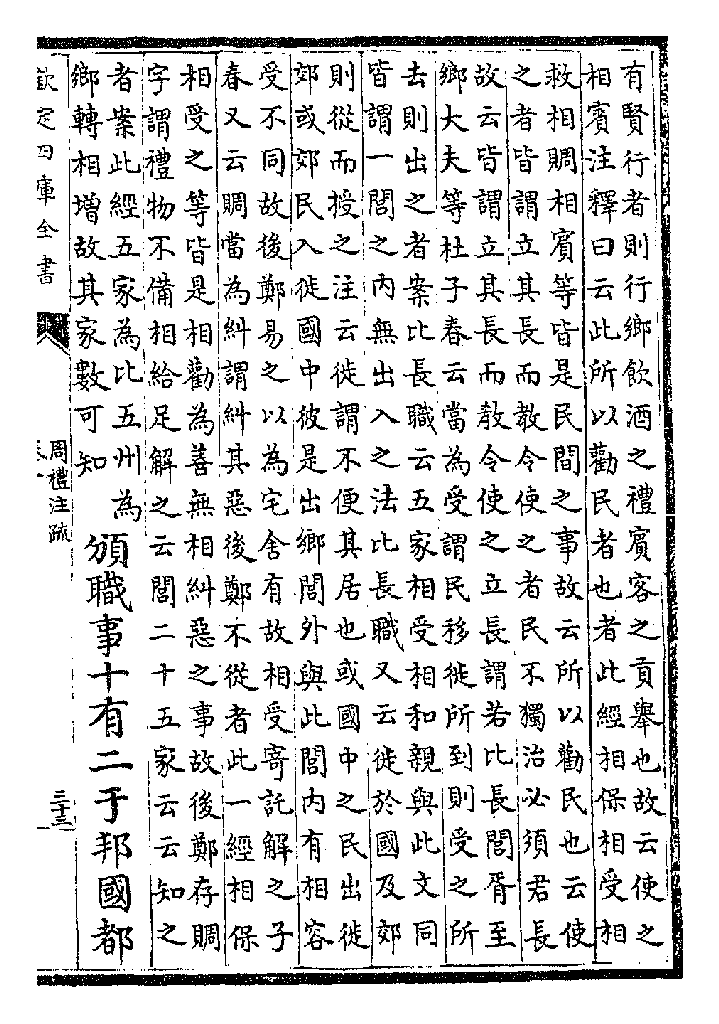 有賢行者則行鄉飲酒之禮賓客之貢舉也故云使之
相賓注釋曰云此所以勸民者也者此經相保相受相
救相賙相賓等皆是民間之事故云所以勸民也云使
之者皆謂立其長而教令使之者民不獨治必須君長
故云皆謂立其長而教令使之立長謂若比長閭胥至
鄉大夫等杜子春云當為受謂民移徙所到則受之所
去則出之者案比長職云五家相受相和親與此文同
皆謂一閭之内無出入之法比長職又云徙於國及郊
則從而授之注云徙謂不便其居也或國中之民出徙
郊或郊民入徙國中彼是出鄉閭外與此閭内有相容
受不同故後鄭易之以為宅舍有故相受寄託解之子
春又云賙當為糾謂糾其惡後鄭不從者此一經相保
相受之等皆是相勸為善無相糾惡之事故後鄭存賙
字謂禮物不備相給足解之云閭二十五家云云知之
者案此經五家為比五州為
鄉轉相增故其家數可知
頒職事十有二于邦國都
欽定四庫全書
周禮注疏
三十三